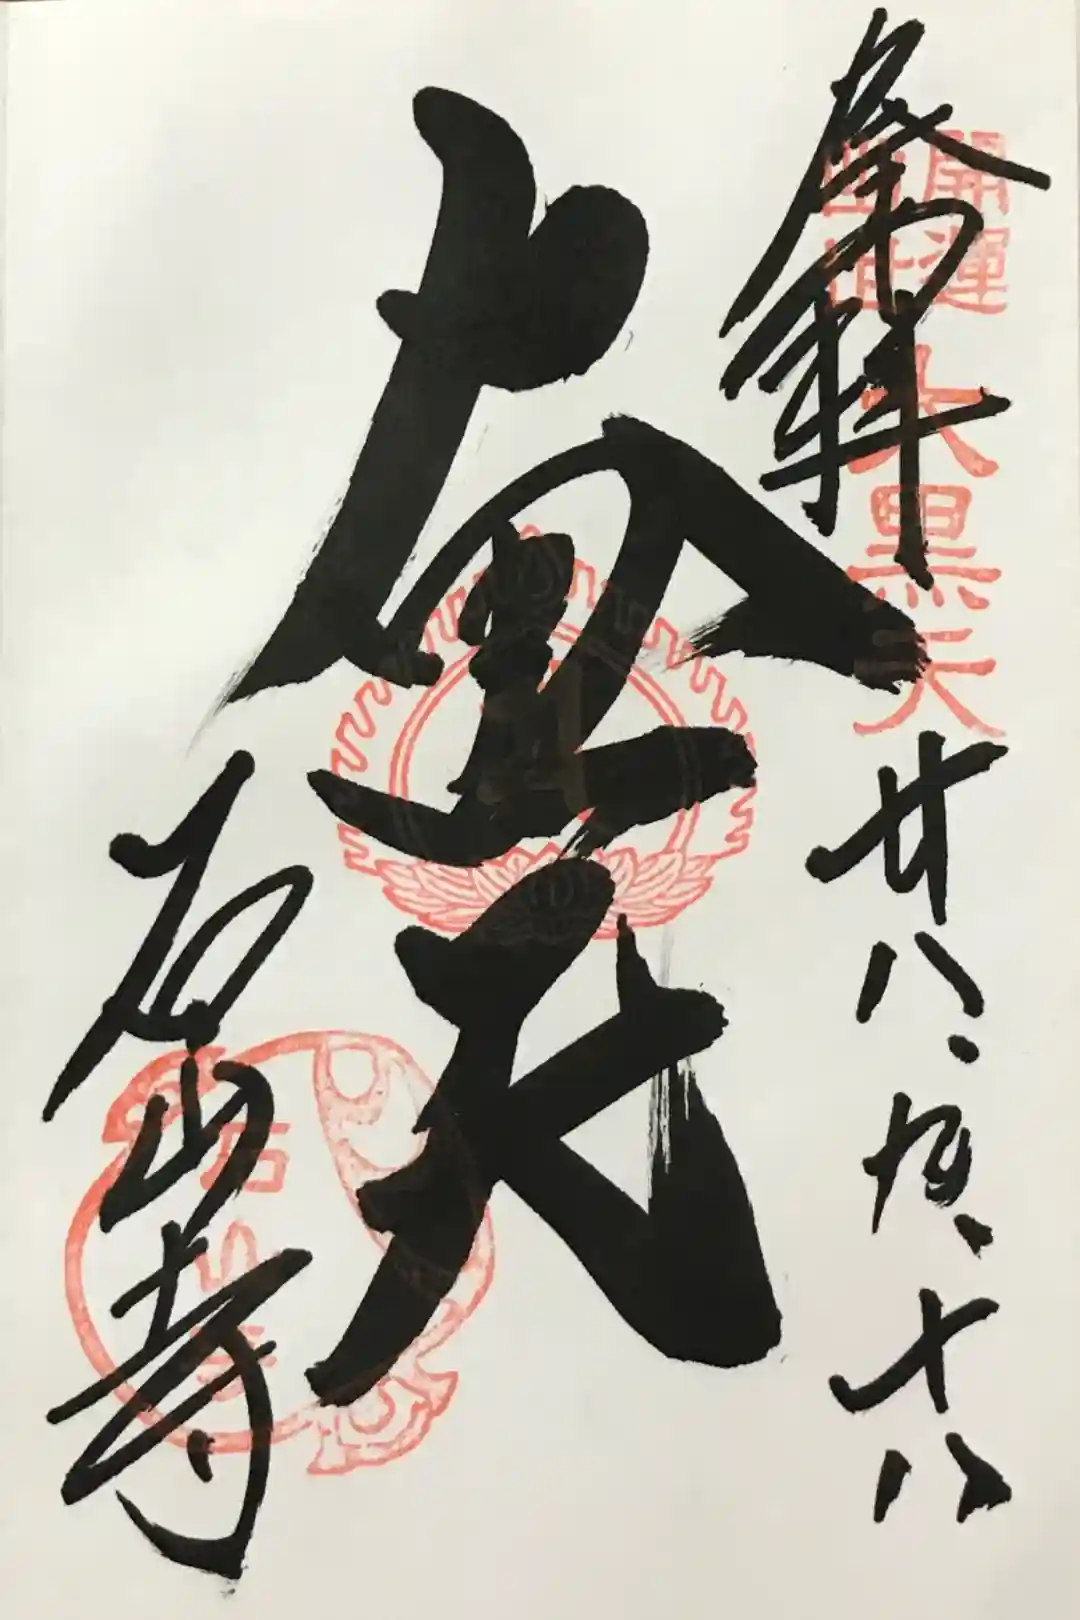 奉拝
廿八、
十八
開運
出世
大黒天
大黒天
石山寺
石山寺